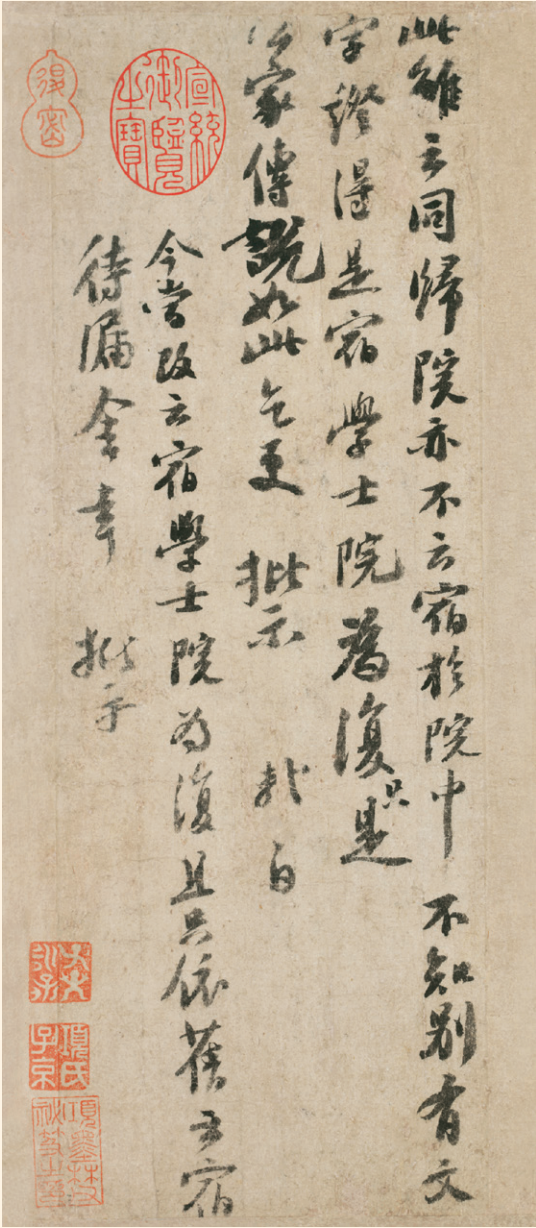 此雖云同歸院亦不云宿於院中 不知別有文
字證得是宿學士院為復只是
公家傳說如此乞更 批示 軾白
今嘗改云宿學士院為復且只依舊云宿
待漏舍幸 批示
宣統御覽之寶
項氏子京
項墨林祕笈之章